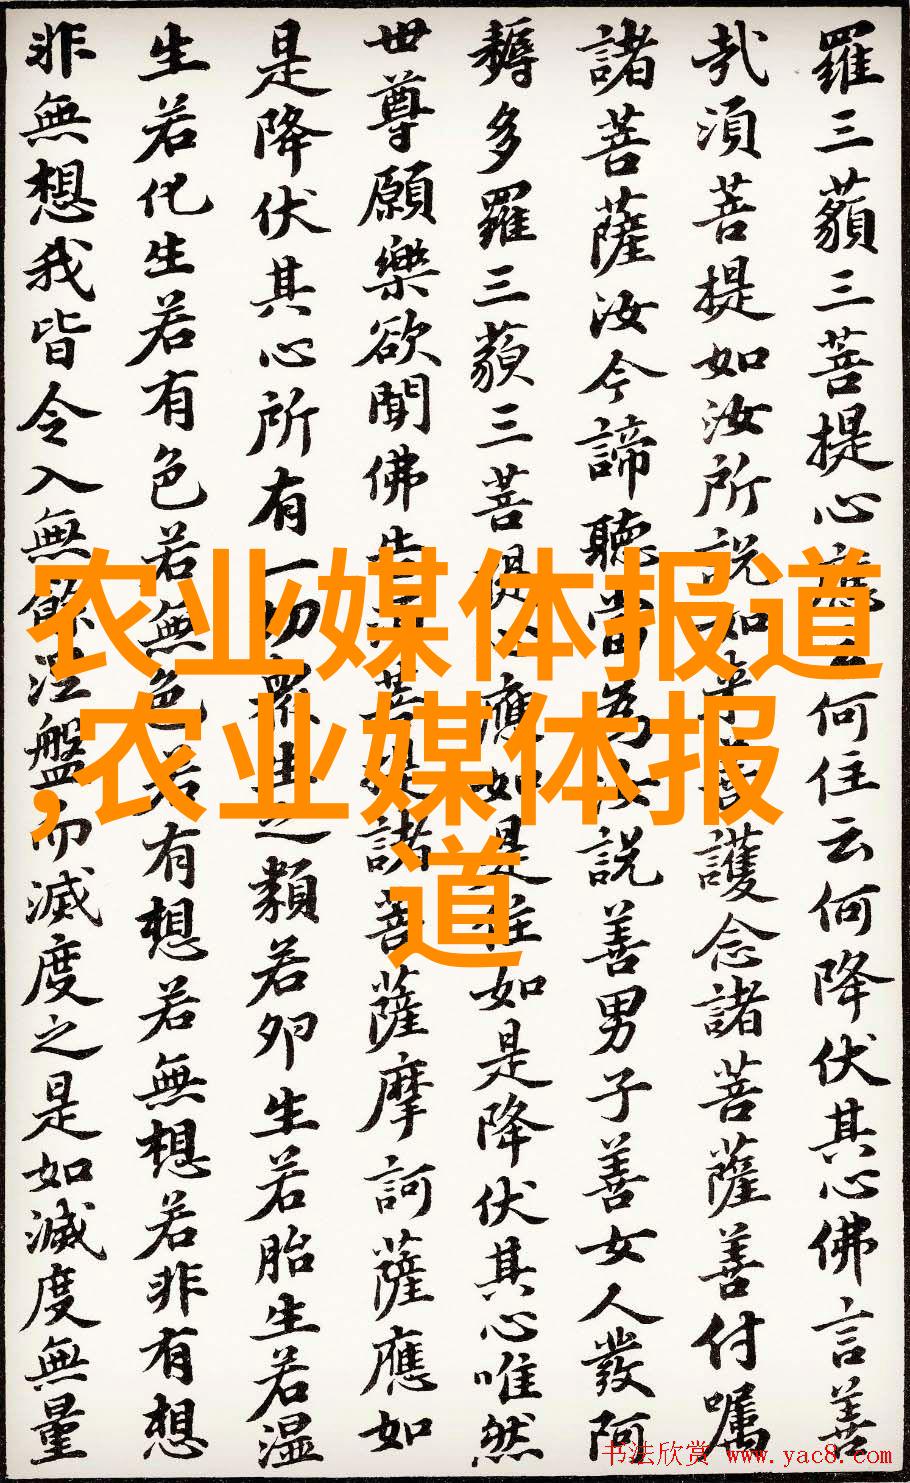 羅三藐三菩提心應云何住云何降伏其心佛言善
哉須菩提如汝所說如来善護念諸菩薩善付嘱
諸菩薩汝今諦聽當為汝說善男子善女人發阿
耨多羅三藐三菩提心應如是住如是降伏其心唯然
世尊願樂欲聞佛告須菩提諸菩薩摩訶薩應如
是降伏其心所有一切眾生之類若卵生若胎生若湿
生若化生若有色若無色若有想若無想若非有想
非無想我皆令入無餘涅盤而滅度之是如滅度無量
农业媒体报道
,农业媒体报
道
书法欣赏 www.yac8.com